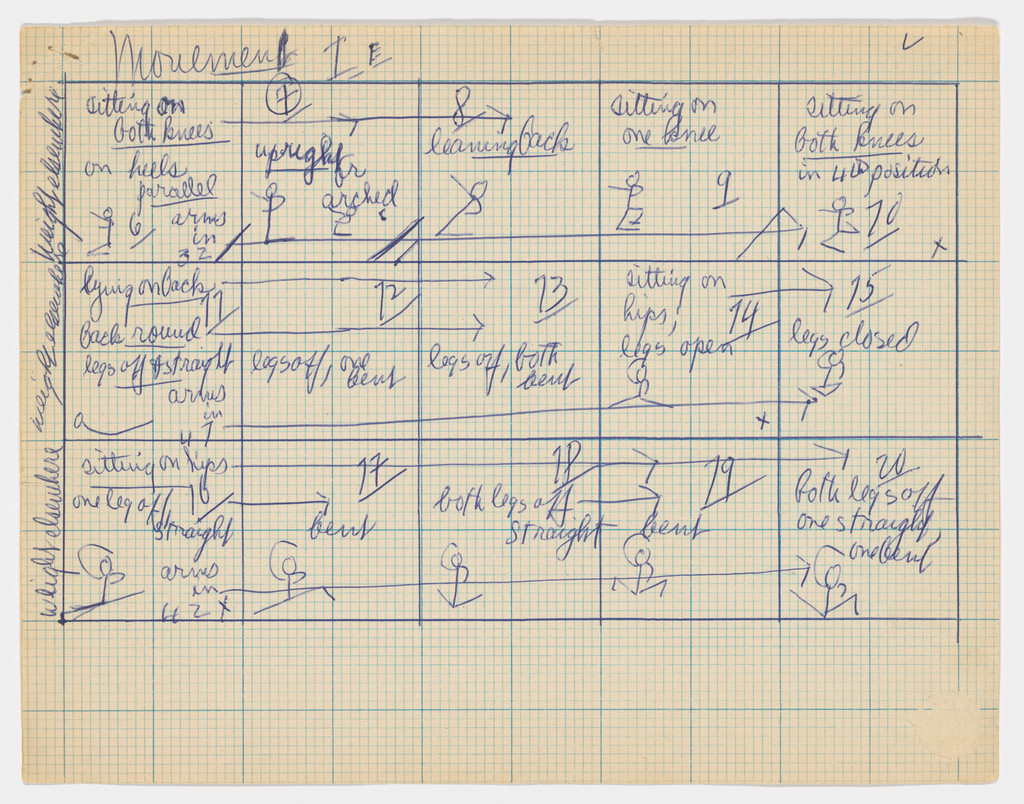 Movement I E
weight elsewhere
weight elsewhere
weight elsewhere
sitting on
both knees
on heels
parallel
6
arms
in
3 2
7
upright
or
arched
8
leaning back
sitting on
one knee
9
sitting on
both knees
in 4th position
10
x
lying on back
11
back round
legs off straight
arms
in
4 1
12
legs off, one
bent
13
legs off, both
bent
sitting on
hips,
14
legs open
x
15
legs closed
sitting on hips
one leg off 16
straight
arms
in
4 2 x
17
bent
18
both legs off
straight
19
bent
20
both legs off
one straight,
one bent